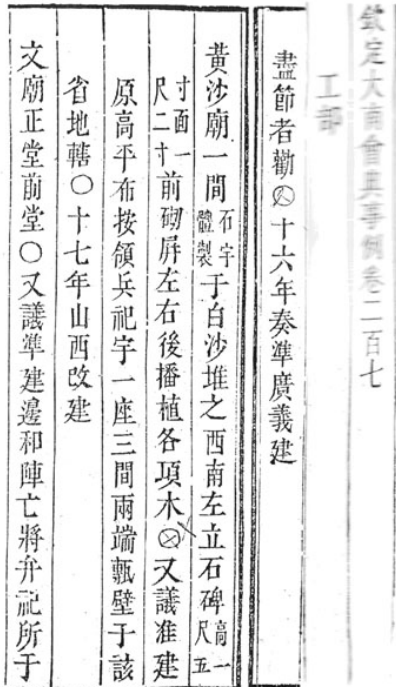 欽定大南會典事例卷二百七
工部
盡節者勸○十六年奏準廣義建
黃沙廟一間石字體製于白沙堆之西南左立石碑高一尺五
寸面一尺二寸前砌屏左右後播植各項木○又議准建
原高平布按領兵祀宇一座三間兩端甎壁于該
省地轄○十七年山西改建
文廟正堂前堂○又議準建邊和陣亡將弁祀所于